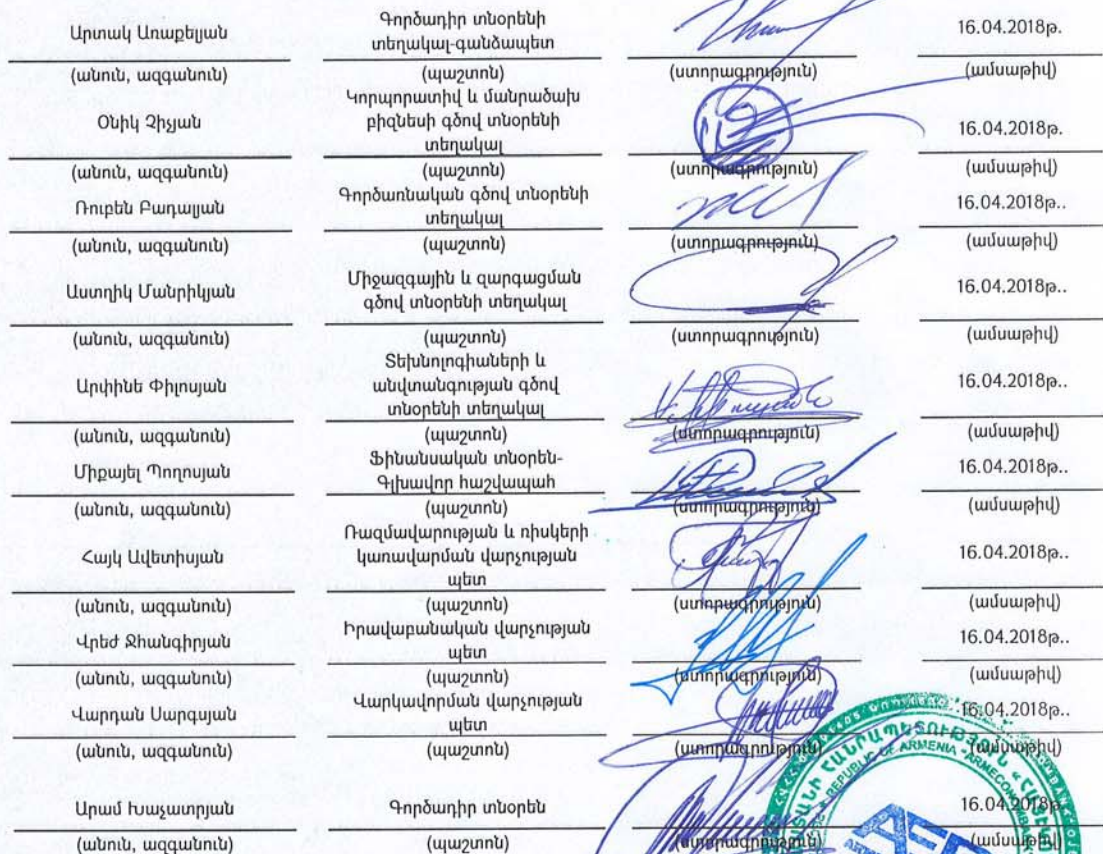 Արտակ Առաքելյան
Գործադիր տնօրենի
տեղակալ-գանձապետ
16.04.2018թ.
(անուն, ազգանուն) (պաշտոն) (ստորագրություն) (ամսաթիվ)
Օնիկ Չիչյան
Կորպորատիվ և մանրածախ
բիզնեսի գծով տնօրենի
տեղակալ
16.04.2018թ.
(անուն, ազգանուն) (պաշտոն) (ստորագրություն) (ամսաթիվ)
Ռուբեն Բադալյան
Գործառնական գծով տնօրենի
տեղակալ
16.04.2018թ..
(անուն, ազգանուն) (պաշտոն) (ստորագրություն) (ամսաթիվ)
Աստղիկ Մանրիկյան
Միջազգային և զարգացման
գծով տնօրենի տեղակալ
16.04.2018թ..
(անուն, ազգանուն) (պաշտոն) (ստորագրություն) (ամսաթիվ)
Արփինե Փիլոսյան
Տեխնոլոգիաների և
անվտանգության գծով
տնօրենի տեղակալ
16.04.2018թ..
(անուն, ազգանուն) (պաշտոն) (ստորագրություն) (ամսաթիվ)
Միքայել Պողոսյան
Ֆինանսական տնօրեն-
Գլխավոր հաշվապահ
16.04.2018թ..
(անուն, ազգանուն) (պաշտոն) (ստորագրություն) (ամսաթիվ)
Հայկ Ավետիսյան
Ռազմավարության և ռիսկերի
կառավարման վարչության
պետ
16.04.2018թ..
(անուն, ազգանուն) (պաշտոն) (ստորագրություն) (ամսաթիվ)
Վրեժ Ջհանգիրյան
Իրավաբանական վարչության
պետ
16.04.2018թ..
(անուն, ազգանուն) (պաշտոն) (ստորագրություն) (ամսաթիվ)
Վարդան Սարգսյան
Վարկավորման վարչության
պետ
16.04.2018թ..
(անուն, ազգանուն) (պաշտոն) (ստորագրություն) (ամսաթիվ)
Արամ Խաչատրյան
Գործադիր տնօրեն
16.04.2018թ.
(անուն, ազգանուն) (պաշտոն) (ստորագրություն) (ամսաթիվ)
REPUBLIC OF ARMENIA